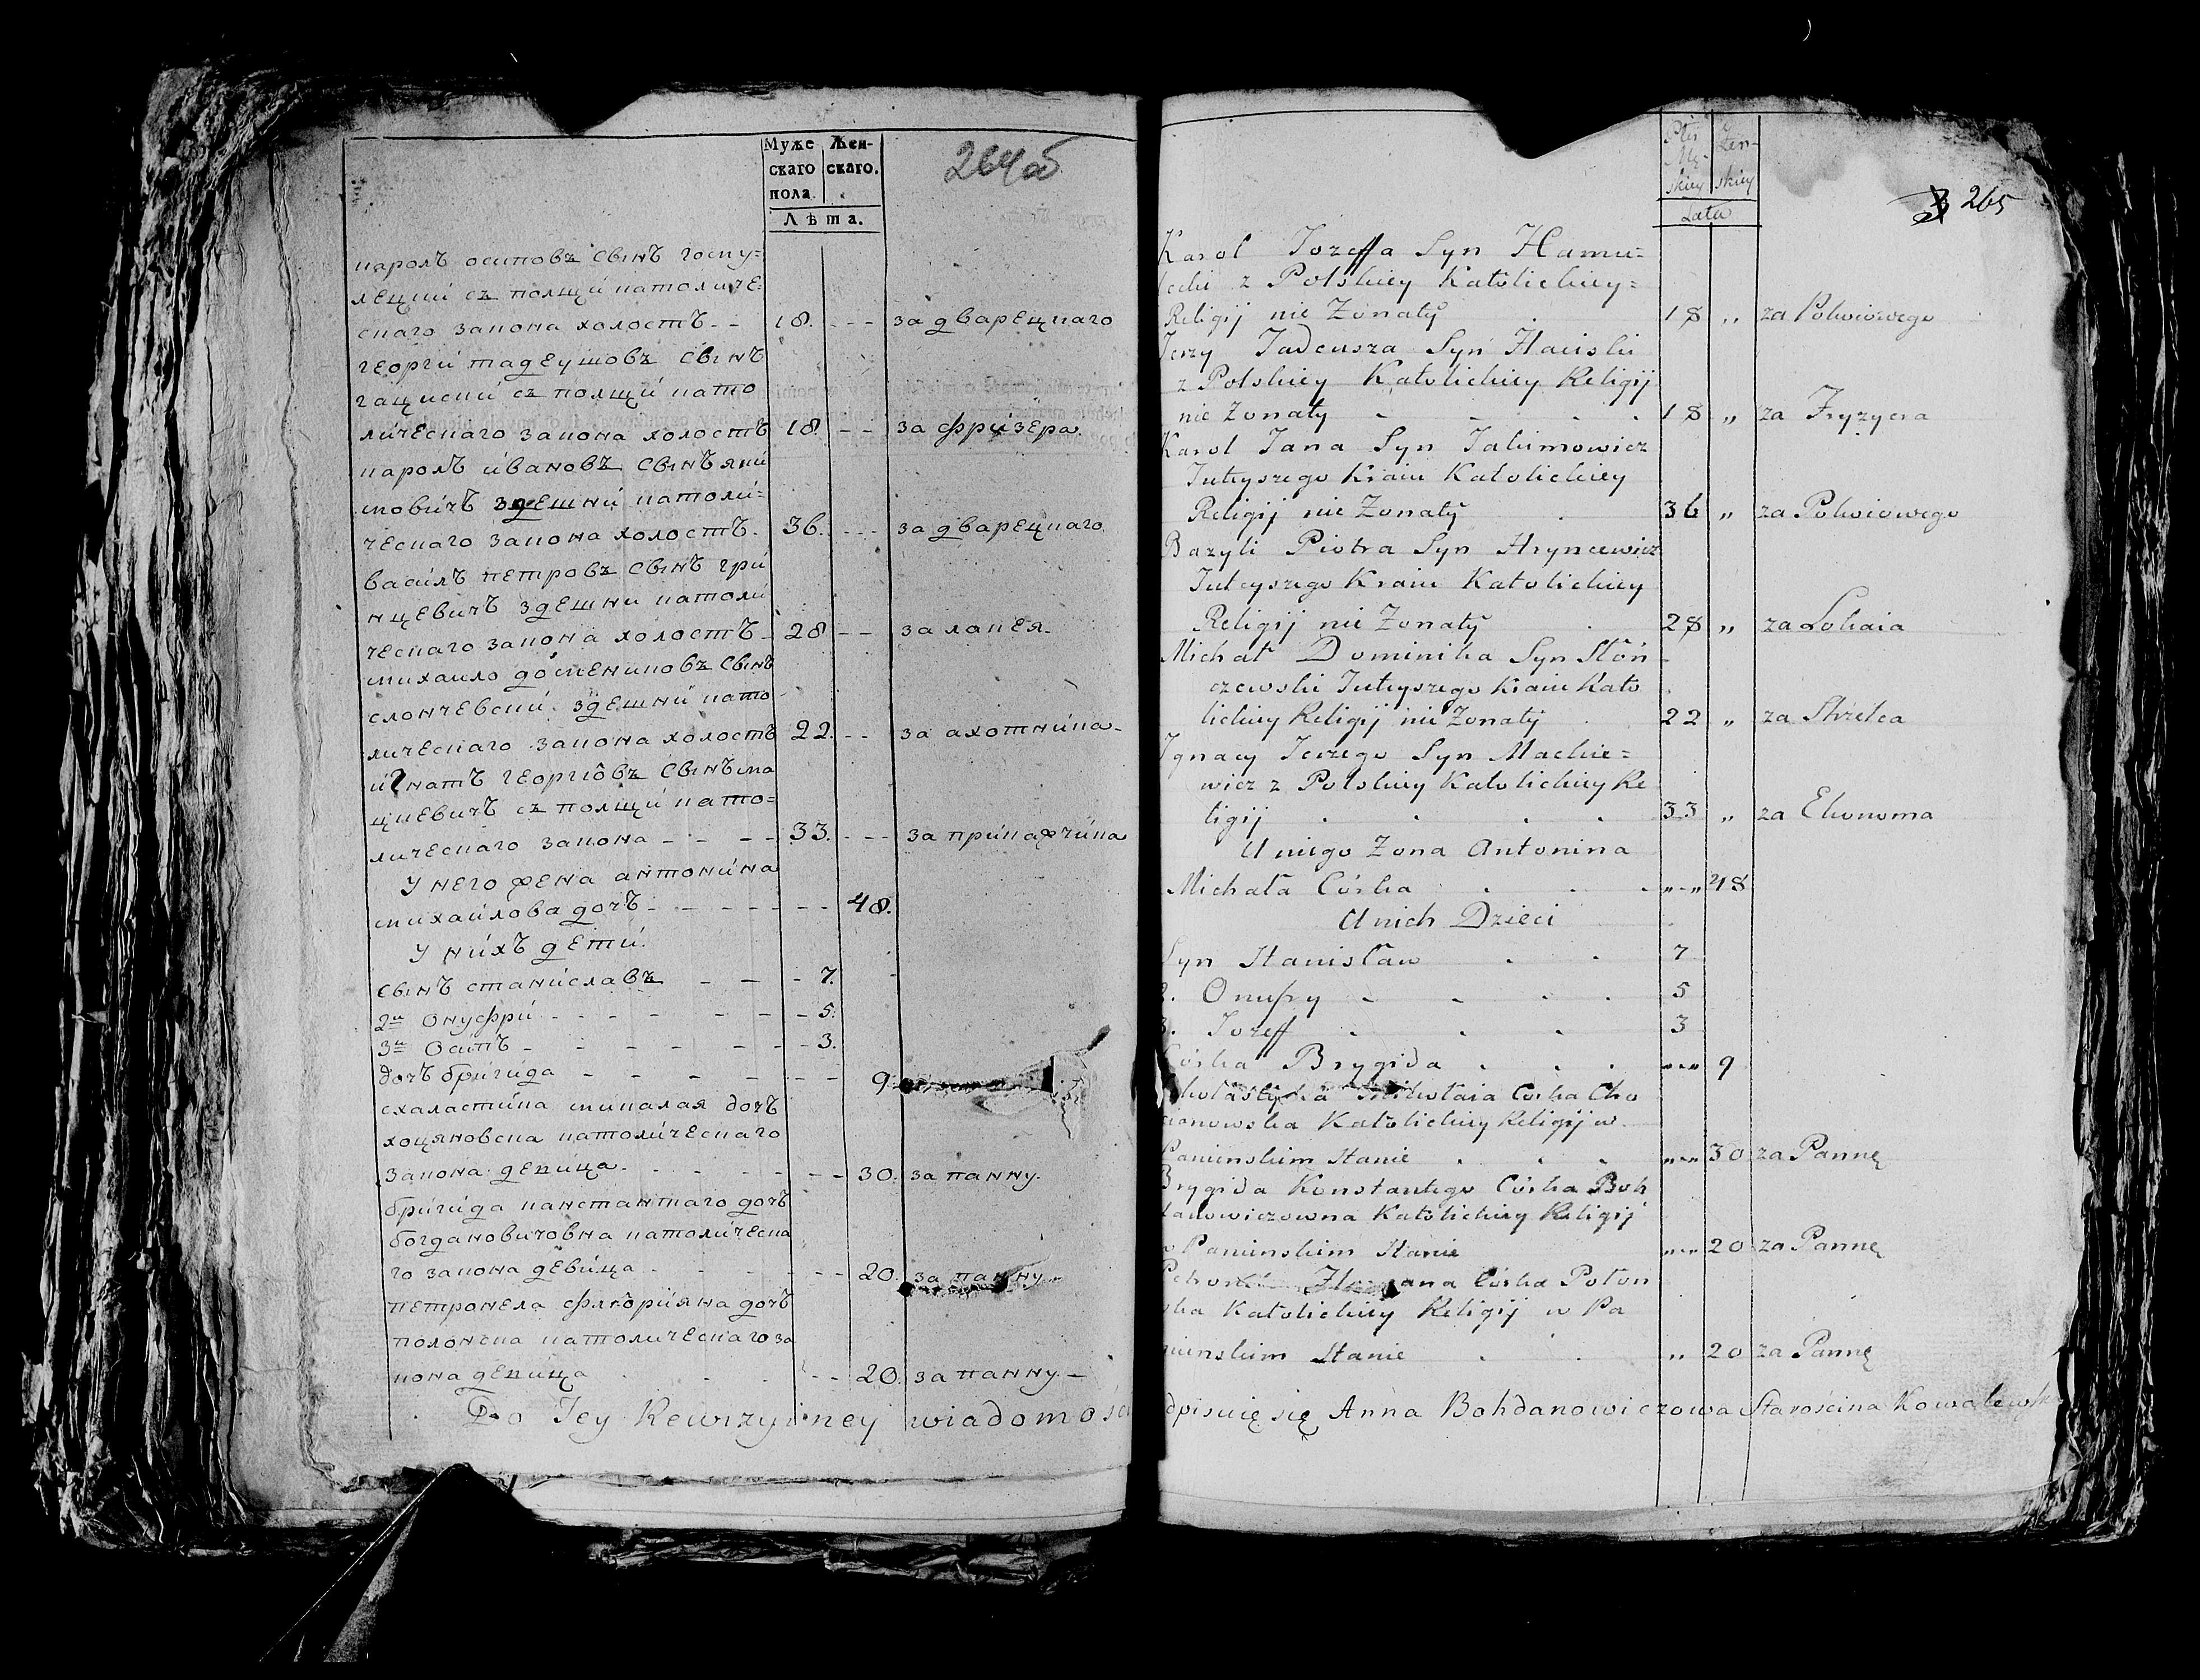 Муже Жен-
скаго скаго.
пола.
Лѣта.
264об
каролъ осиповъ сынъ гому=
лецкий съ полщи католиче=
скаго закона холостъ 18. за дварецкаго
георги тадеушовъ сынъ
гацискии съ полщи като
лическаго закона холостъ 18. за фризера.
каролъ ивановъ сынъ яки
мовичъ здешни католи=
ческаго закона холостъ. 36. за дварецкаго
василъ петровъ сынъ гри
нцевичъ здешни католи
ческаго закона холостъ 28 за лакея
михаило доменыковъ сынъ
слончевский здешни като
лическаго закона холостъ 22. за ахотника
игнатъ георгиовъ сынъ ма
цкевичъ съ полщи като=
лическаго закона 33. за приказчика
У него жена антонина
михаилова дочъ 48.
У нихъ дети.
сынъ станиславъ 7.
2и Онуфри 5.
3и Осипъ 3.
дочъ бригида 9.
схаластика микалая дочъ
хоцяновска католическаго
закона девица 30. за панну.
бригида канстантаго дочъ
богдановичовна католическа
го закона девица 20. за панну
петронела флюрияна дочъ
полонска католическаго за
кона девица 20. за панну
Do Jey Rewizyjney wiadomośc
Płci Męskiey Żenskiey
Lata
265
Karol Jozeffa Syn Hamu=
lecki z Polskiey Katolickiey=
Religij nie Zonaty 18 „ za Pokoiowego
Jerzy Tadeusza Syn Haciski
z Polskiey Katolickiey Religij
nie Zonaty 18 „ za Fryzyera
Karol Jana Syn Jakimowicz
Tuteyszego Kraiu Katolickiey
Religij nie Zonaty 36 „ za Pokoiowego
Bazyli Piotra Syn Hryncewicz
Tuteyszego Kraiu Katolickiey
Religij nie Zonaty 28 „ za Lokaia
Michał Dominika Syn Słón
czewski Tuteyszego Kraiu Kato
lickiey Religij nie Zonaty 22 „ za Strzelca
Ignacy Jerzego Syn Mackie=
wicz z Polskiey Katolickiey Re
ligij 33 „ za Ekonoma
U niego Zona Antonina
Michała Córka „-„ 48
U nich Dzieci
Syn Stanisław 7
2. Onufry 5
3. Jozeff 3
Córka Brygida „-„ 9
cholastyka Mikołaia Corka Cho
cianowska Katolickiey Religij w
Panienskim Stanie „-„ 30 za Pannę
Brygida Konstantego Córka Boh
danowiczowna Katolickiey Religij
w Panienskim Stanie „-„ 20 za Pannę
Córka Polon
ska Katolickiey Religij w Pa
nienskim Stanie „ 20 za Pannę
dpisuię się Anna Bohdanowiczowa Starościna Kowalewska